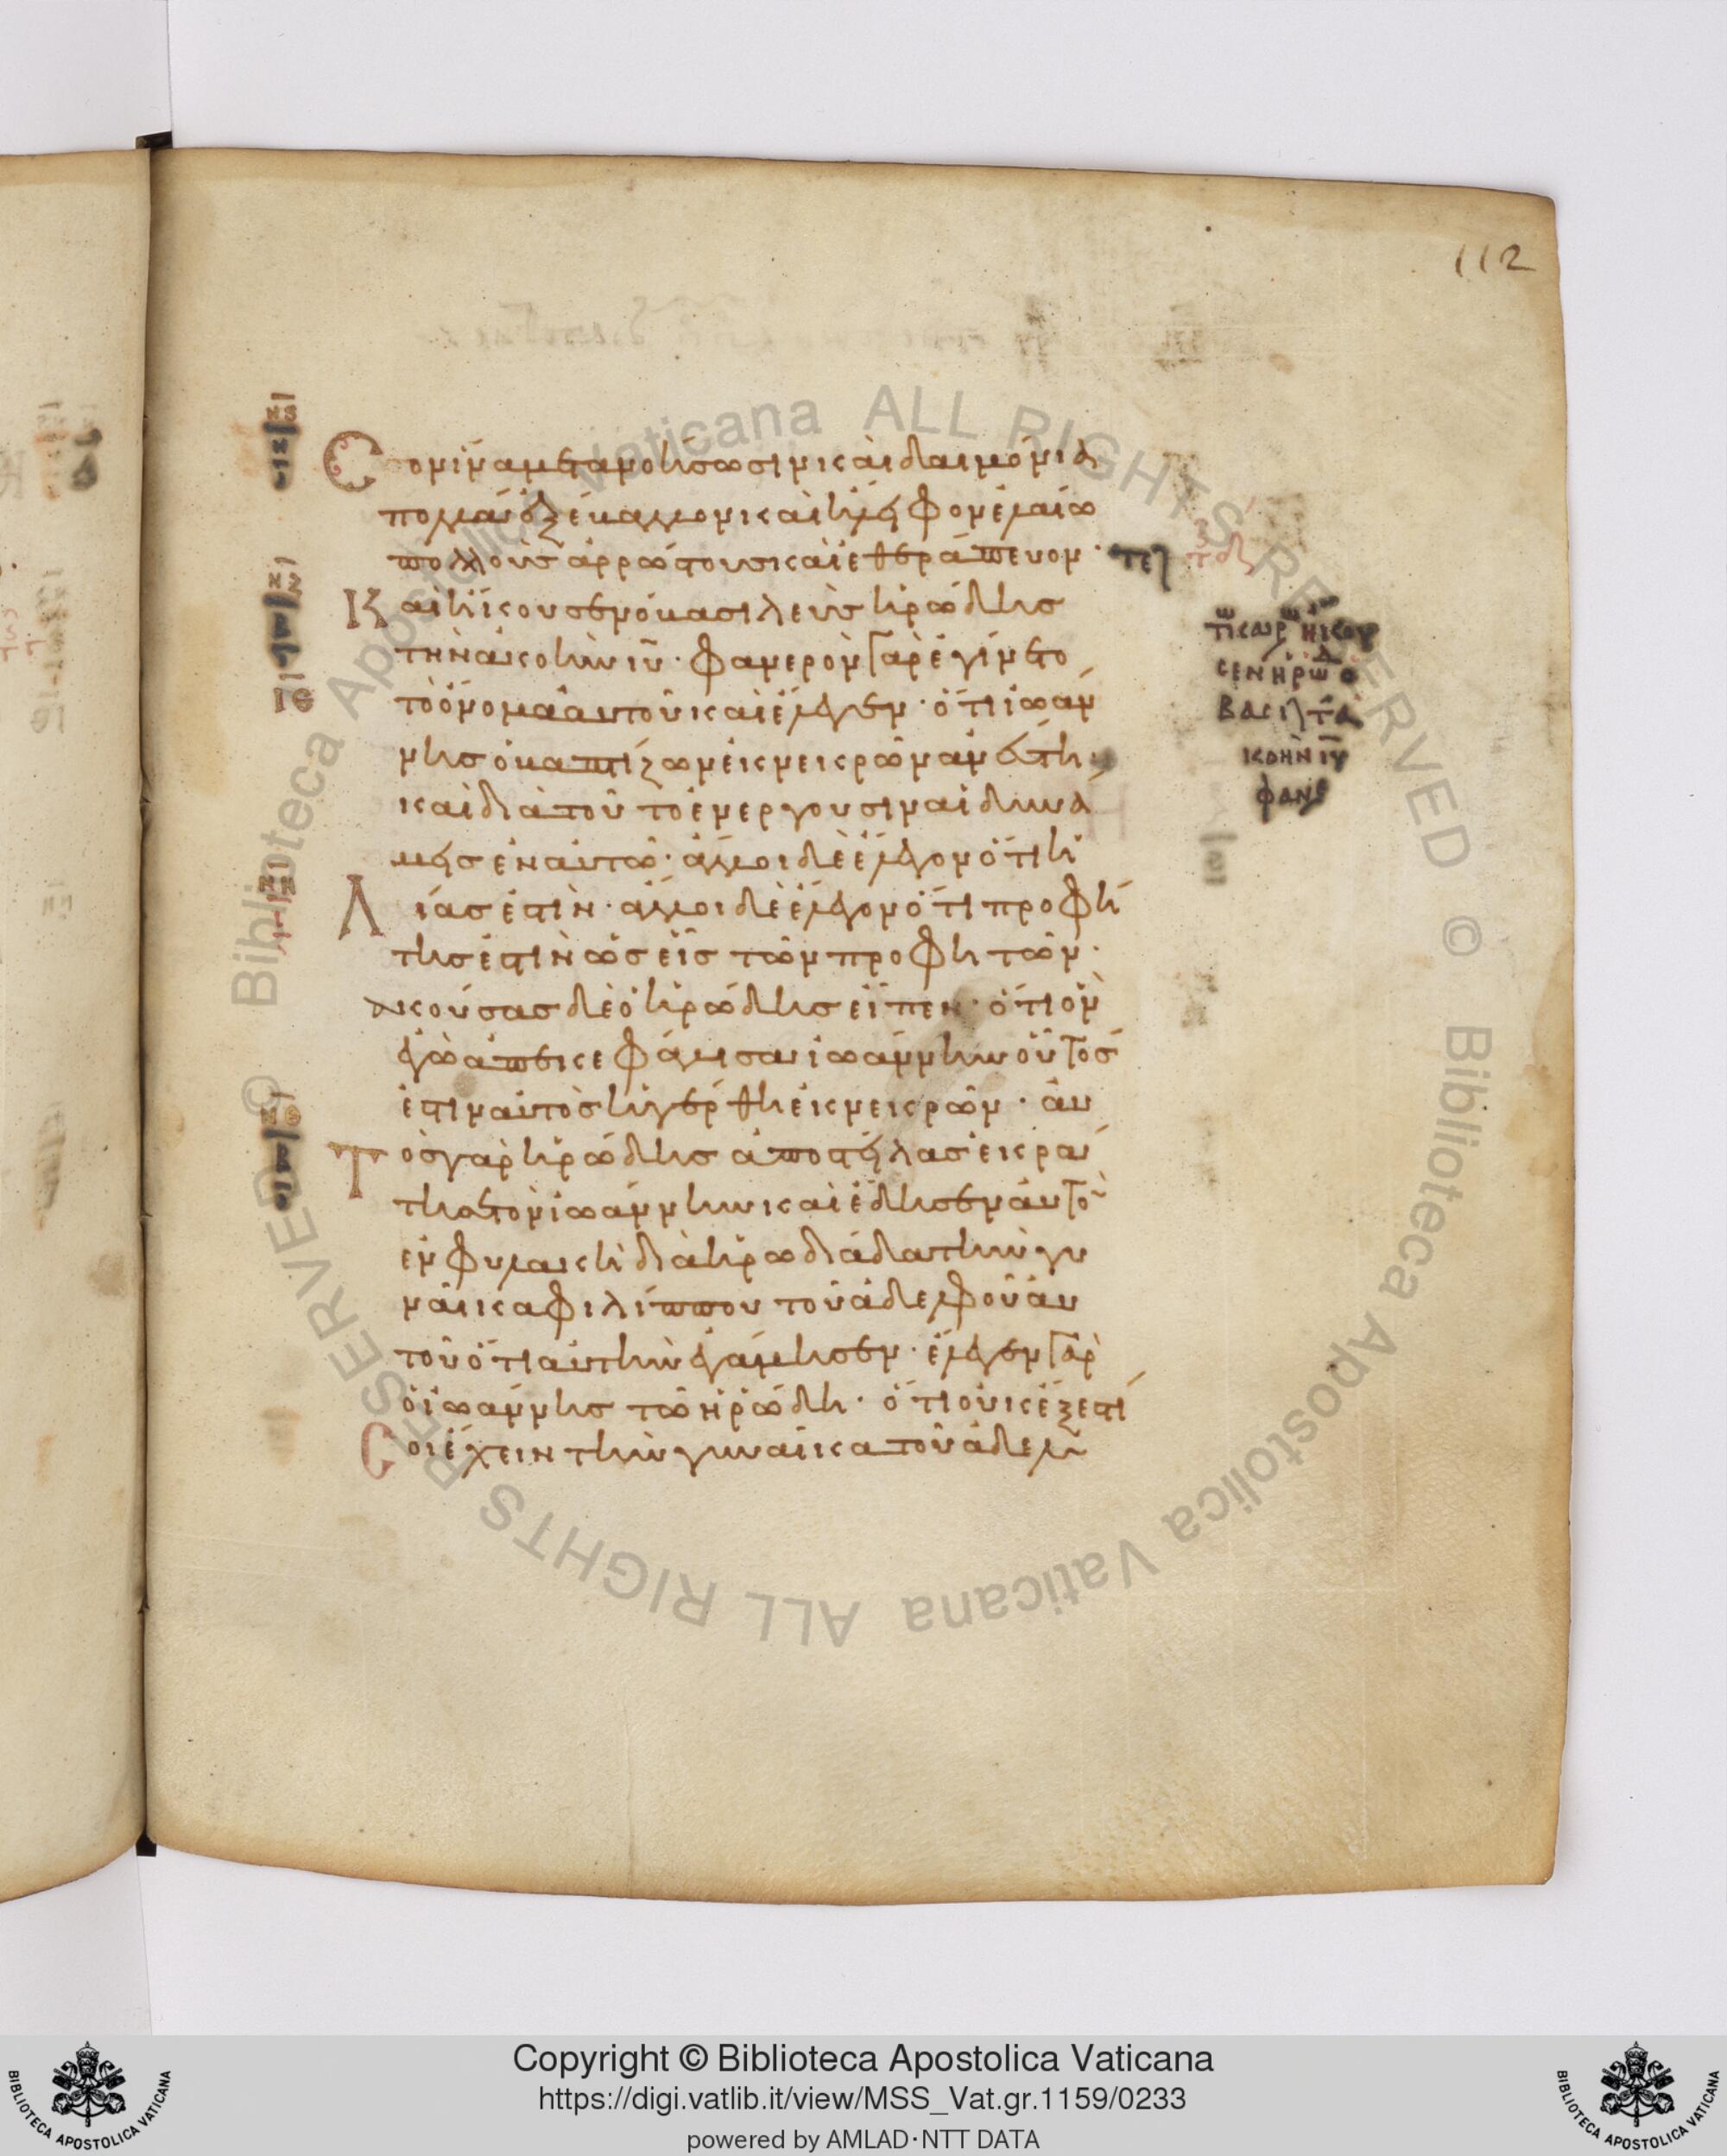 112
σον ἵνα μετανοήσωσιν καὶ δαιμόνια
πολλὰ ἐξέβαλλον καὶ ἤλειφον ἐλαίω
πολλοὺς ἀρρώστους καὶ ἐθεράπευον· τελ
Καὶ ἤκουσεν ὁ βασιλεὺς ἡρώδης
τὴν ἀκοὴν ιυ· φανερὸν γὰρ ἐγένετο
τὸ ὄνομα αὐτοῦ καὶ ἔλεγεν· ὅτι ἰωάν
νης ὁ βαπτίζων ἐκ νεκρῶν ἀνέστη
καὶ διὰ τοῦτο ἐνεργοῦσιν αἱ δυνά
μεις ἐν αὐτῶ· ἄλλοι δὲ ἔλεγον ὅτι ἡ
Λίας ἐστὶν· ἄλλοι δὲ ἔλεγον ὅτι προφή
της ἐστὶν ὡς εἷς τῶν προφητῶν·
ἀκούσας δὲ ὁ ἡρώδης εἶπεν· ὅτι ὃν
ἐγὼ ἀπεκεφάλισα ἰωάννην οὗτος
ἐστιν αὐτὸς ἠγέρθη ἐκ νεκρῶν· αὐ
Τὸς γὰρ ἡρώδης ἀποστείλας ἐκρά
τησε τὸν ἰωάννην καὶ ἔδησεν αὐτὸ
ἐν φυλακῆ διὰ ἡρωδιάδα τὴν γυ
ναῖκα φιλίππου τοῦ ἀδελφοῦ αὐ
τοῦ ὅτι αὐτὴν ἐγάμησεν· ἔλεγεν γὰρ
ὁ ἰωάννης τῶ ἡρώδη· ὅτι οὐκ ἔξεστί
Σοι ἔχειν τὴν γυναῖκα τοῦ ἀδελ
τω καιρω ηκου
σεν ηρωδ ο
βασιλ τ α
κοην ιυ
φανε
Copyright © Biblioteca Apostolica Vaticana
https://digi.vatlib.it/view/MSS_Vat.gr.1159/0233
powered by AMLAD·NTT DATA
BIBLIOTECA APOSTOLICA VATICANA
BIBLIOTECA APOSTOLICA VATICANA
© Biblioteca Apostolica Vaticana ALL RIGHTS RESERVED © Biblioteca Apostolica Vaticana ALL RIGHTS RESERVED